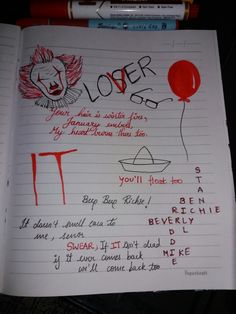 LOSER
V
Your hair is winter fire,
January embers,
My heart burns there too.
IT
you'll float too
Bep Bep Richie!
S
T
A
BEN
RICHIE
BEVERLY
D L
D
MIKE
E
It doesn't smell caca to
me, senor
SWEAR, If IT isn't dead
if it ever comes back
we'll come back too
Paperkraft